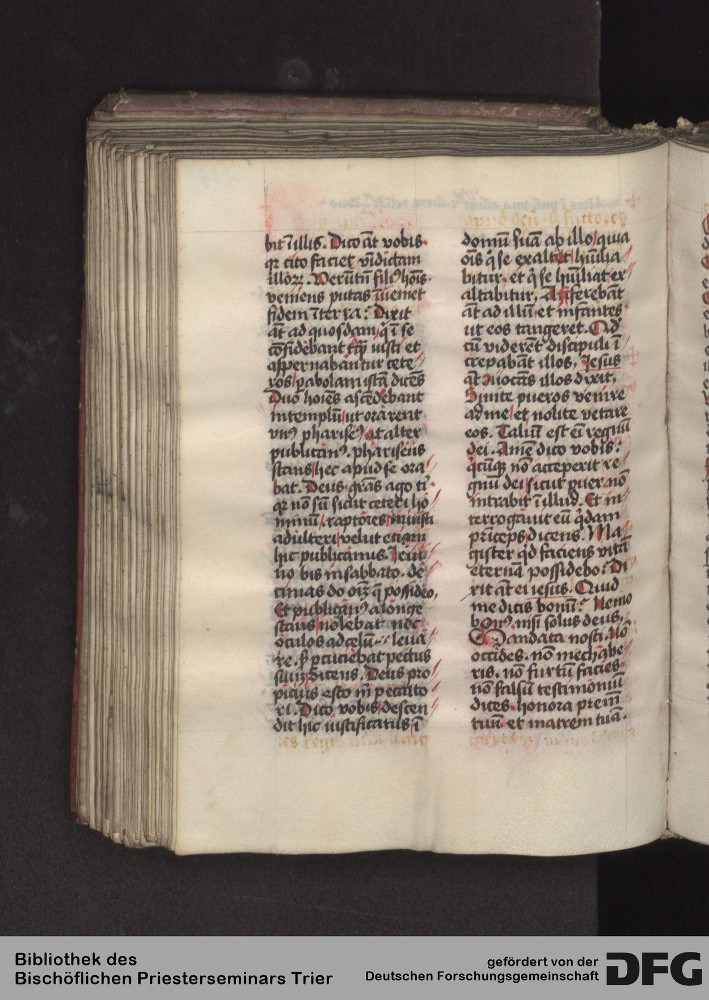 bit ĩ illis. Dico ãt vobis
qr cito faciet vĩdictam
illoꝝ. Verũtñ filiꝰ hoĩs
veniens putas ĩueniet
fidem ĩ terra? Dixit
ãt ad quosdam q̃ ĩ se
cõfidebant tq̃ iusti et
aspernabantur cete
ros pabolam istã dicẽs
Duo hoiẽs ascẽdebant
in templũ ut orarent
vnꝰ phariseꝰ et alter
publicanꝰ. phariseus
stans hec apud se ora
bat. Deus grãs ago ti
qr nõ sũ sicut ceteri ho
minum raptores iniusti
adulteri velut etiam
hic publicanus. Ieiu
no bis in sabbato. de
cimas do oĩm q̃ possideo.
Et publicanꝰ a longe
stans nolebat nec
oculos ad celũ leua
re. sꝫ pcuciebat pectus
suum dicens. Deus pro
picius esto m̃ peccato
ri. Dico vobis descen
dit hic iustificatus ĩ
domũ suã ab illo quia
oĩs q̃ se exaltat hũilia
bitur. et q̃ se hũiliat ex
altabitur. Afferebant
ãt ad illũ et infantes
ut eos tangeret. Qd
cũ viderẽt discipuli ĩ
crepabant illos. Iesus
ãt vocãs illos dixit.
Sinite pueros venire
ad me et nolite vetare
eos. Taliũ est em̃ regnũ
dei. Amẽ dico vobis
qcũqꝫ nõ acceperit re
gnũ dei sicut puer nõ
intrabit ĩ illud. Et in
terrogauit eũ qdam
prĩceps dicens. Ma
gister qd faciens vitã
eternã possidebo? Di
xit ãt ei iesus. Quid
me dicis bonũ? Nemo
bonꝰ nisi solus deus.
Mandata nosti. Nõ
occides. nõ mechabe
ris. nõ furtũ facies
nõ falsũ testimoniũ
dices. honora prem̃
tuũ et matrem tuã.
Bibliothek des
Bischöflichen Priesterseminars Trier
gefördert von der
Deutschen Forschungsgemeinschaft
DFG